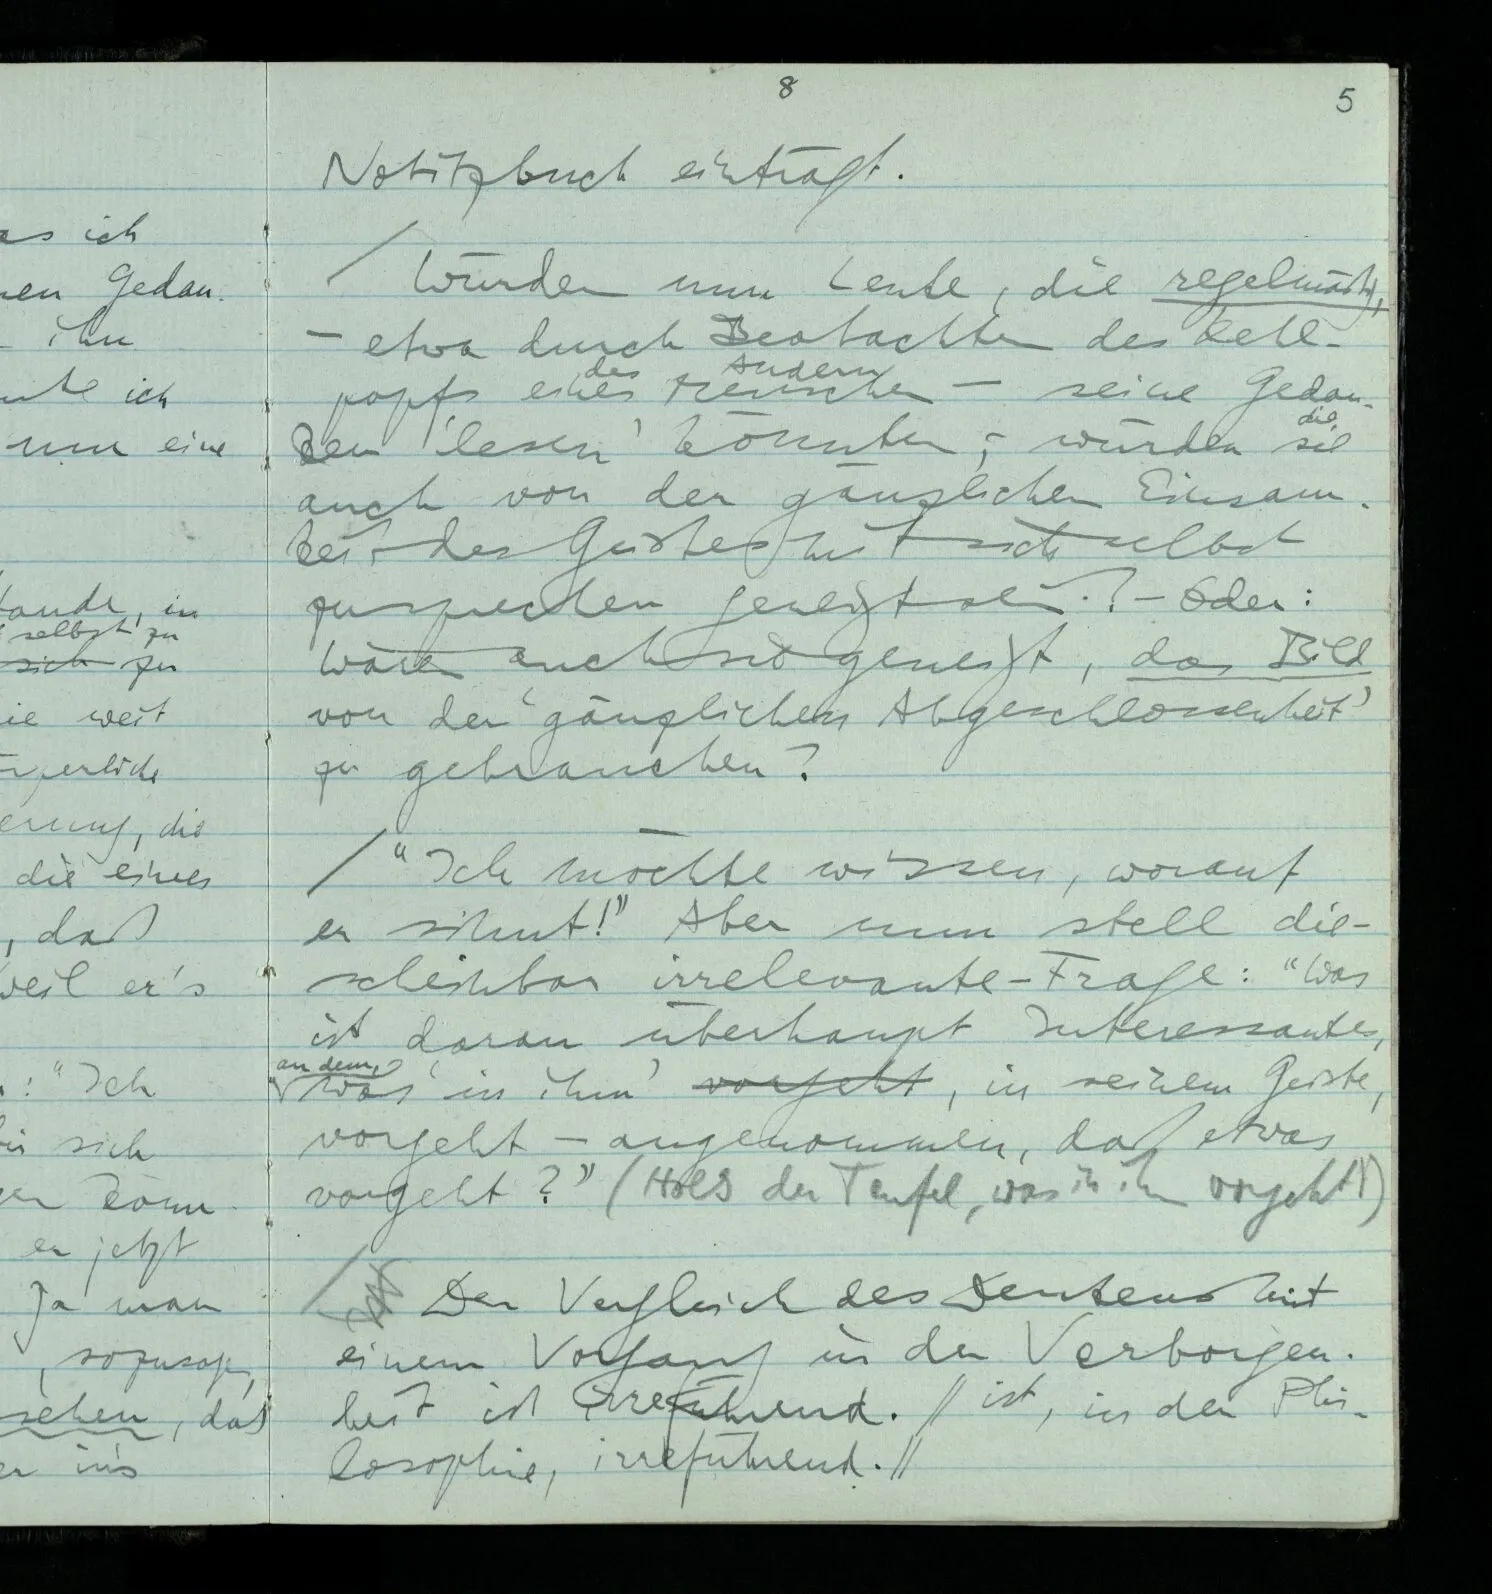 8
5
Notitzbuch einträgt.
/ Würden nun Leute, die regelmäßig,
– etwa durch Beobachten des Kehl-
des Andern
kopfs eines Menschen – seine Gedan-
die
ken 'lesen' könnten, – würden sie
auch von der gänzlichen Einsam-
keit des Geistes mit sich selbst
zu sprechen geneigt sein? – Oder:
wären auch sie geneigt, das Bild
von der 'gänzlichen Abgeschlossenheit'
zu gebrauchen?
/ "Ich möchte wissen, worauf
er sinnt!" Aber nun stell die –
scheinbar irrelevante – Frage: "Was
ist daran überhaupt Interessantes,
an dem,
was 'in ihm' vorgeht, in seinem Geiste,
vorgeht – angenommen, daß etwas
vorgeht?" (Hol's der Teufel, was in ihm vorgeht!)
/ Der Vergleich des Denkens mit
einem Vorgang in der Verborgen-
heit ist irreführend. // ist, in der Phi-
losophie, irreführend. //
as ich
nen Gedan-
ihn
nte ich
nun eine
tande, in
selbst zu
sich zu
ie weit
örperliche
erung, die
die eines
, daß
weil er's
: "Ich
sich
er kann
er jetzt
Ja man
, sozusagen,
sehen, daß
er in's